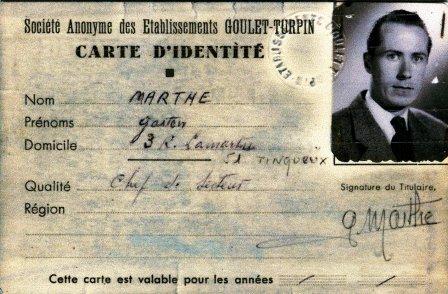 Société Anonyme des Etablissements GOULET-TURPIN
CARTE D'IDENTITÉ
Nom MARTHE
Prénoms Gaston
Domicile 3 R. Lamartine
51 TINQUEUX
Qualité Chef de secteur
Région
Signature du Titulaire,
G Marthe
Cette carte est valable pour les années / /